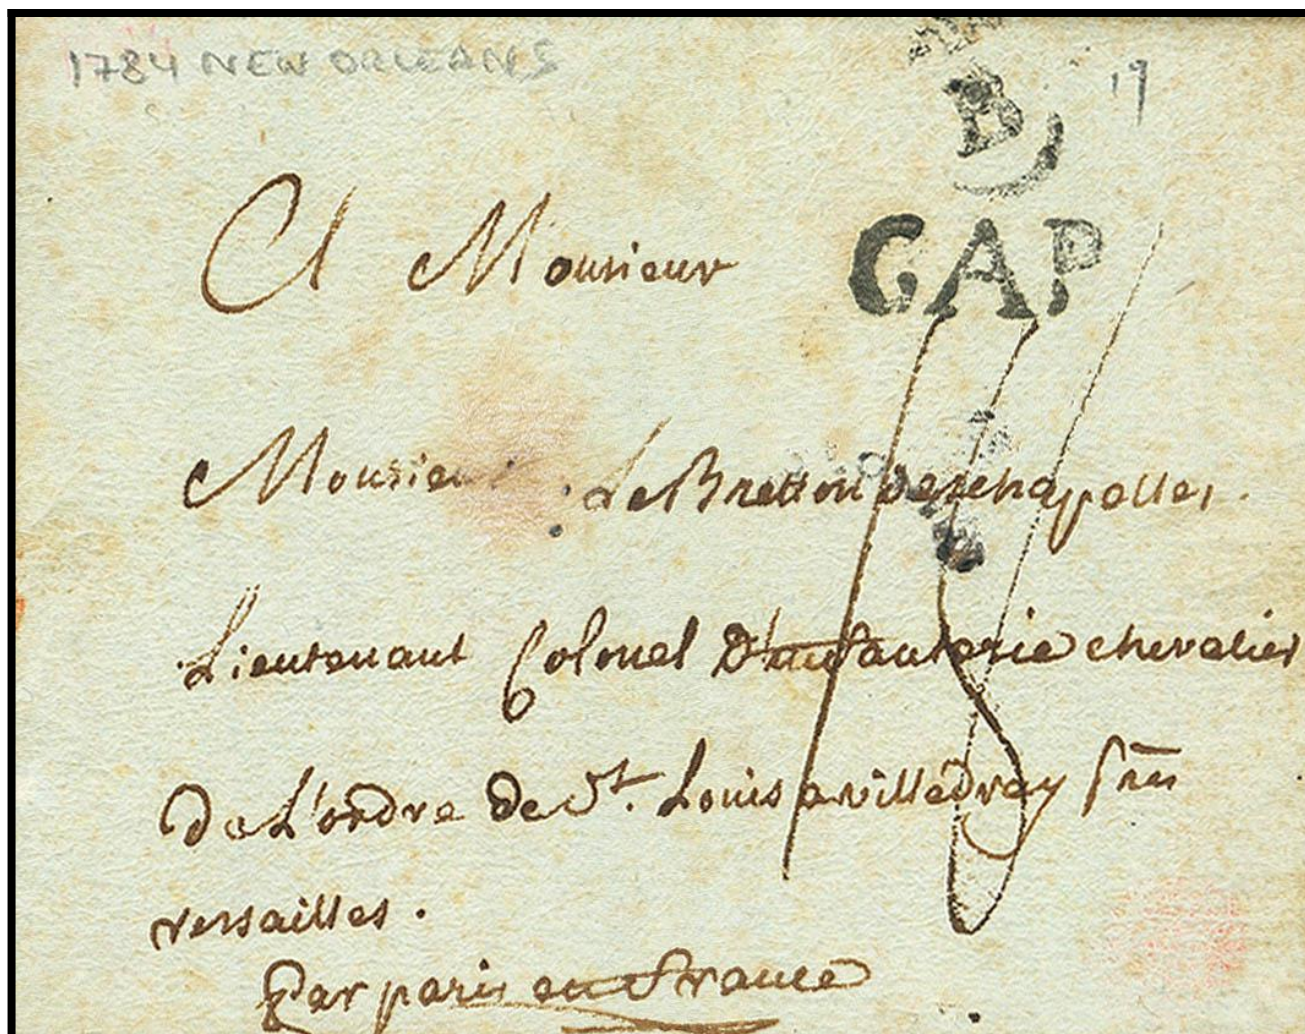 1784 NEW ORLEANS
B
19
CAP
A Monsieur
Monsieur le Bretton Deschapelles.
Lieutenant Colonel D'infanterie chevalier
De L'ordre de St. Louis a villedvray près
versailles.
Par paris en france
18